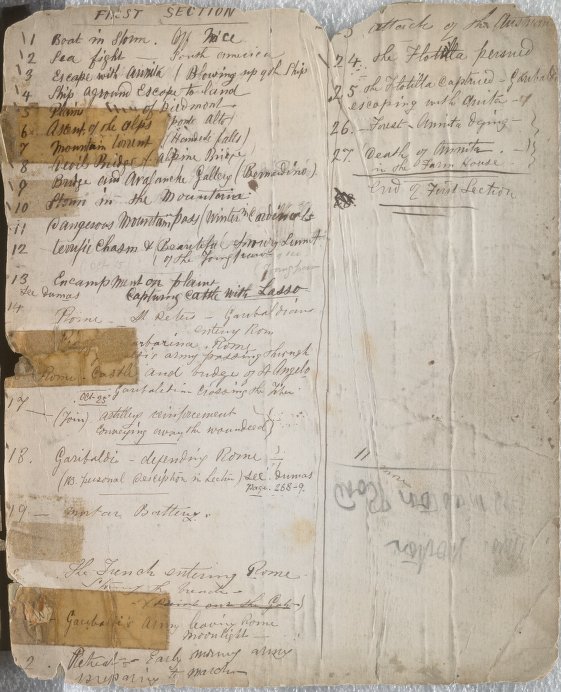 FIRST SECTION
1 Boat in Storm. Off Nice
2 Sea fight — South america
3 Escape with Annita (Blowing up of the Ship
4 Ship aground Escape to land
5 Plains of Piedmont
6 Ascent of the Alps
7 Mountain torrent (Handeck falls)
8 Devils Bridge or Alpine Bridge
9 Bridge and Avalanche Gallery (Bernadino)
10 Storm in the Mountains
11 Dangerous Mountain Pass (Winter in Cordilleras
12 Terrific Chasm & Beautiful Snowy Summit
of the Jungfrau
13 Encampment on plains
See Dumas Capturing Cattle with Lasso
14
Rome — St Peters — Garibaldians
entering Rom
Barbarina. Rome
army passing through
Rome. Castle and bridge of St Angelo
Oct 25 Garibaldian Crossing the Tiber
17 — (Join) artillery reinforcement
Conveying away the wounded
18. Garibaldi — defending Rome
(NB. personal description in Lecture) See Dumas
Page. 268-9.
19 — mortar Battery.
The French entering Rome
Garibaldi's Army leaving Rome
Moonlight —
2. Retreat — Early morning army
preparing to march
attack of the Austrian
24. the Flotilla pursued
25 the Flotilla Captured — Garibaldi
escaping with Anita —
26. — Forest — Annita dying —
27. Death of Annita.
in the Farm House
End of First Section
11